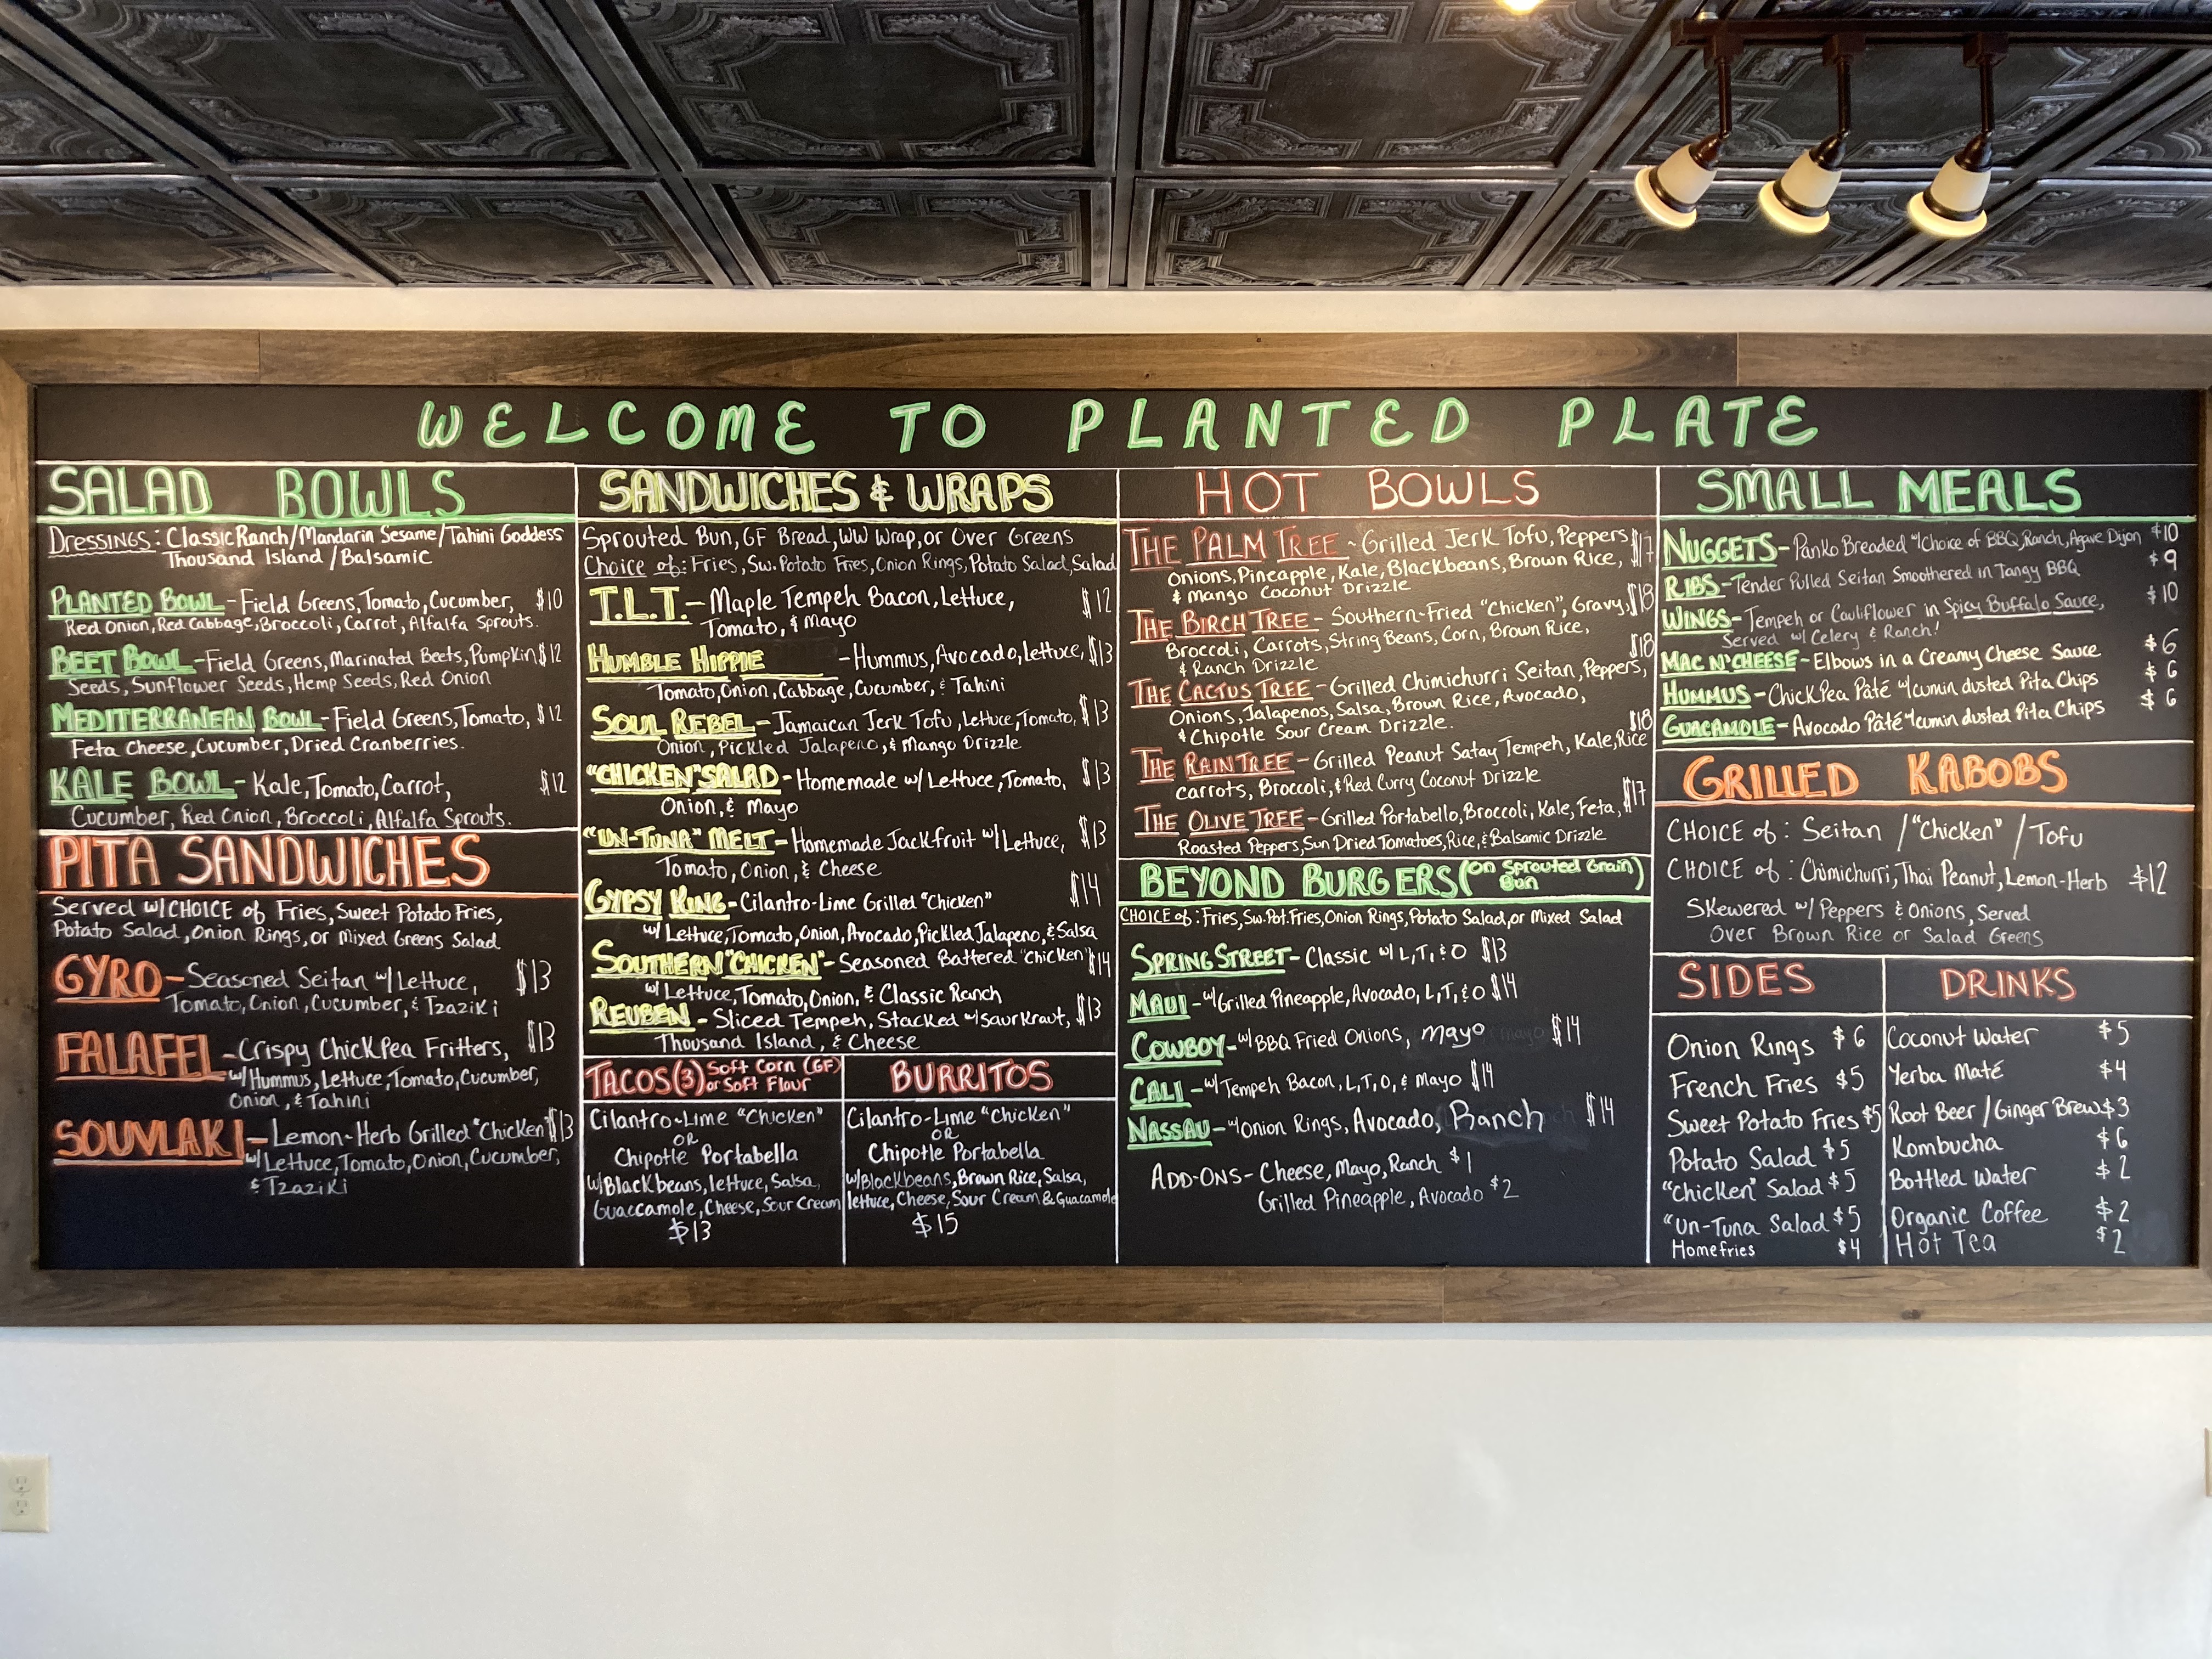 WELCOME TO PLANTED PLATE
SALAD BOWLS
DRESSINGS: Classic Ranch/Mandarin Sesame/Tahini Goddess
Thousand Island/Balsamic
PLANTED BOWL-Field Greens, Tomato, Cucumber, $10
Red Onion, Red Cabbage, Broccoli, Carrot, Alfalfa Sprouts.
BEET BOWL-Field Greens, Marinated Beets, Pumpkin $12
Seeds, Sunflower Seeds, Hemp Seeds, Red Onion
MEDITERRANEAN BOWL-Field Greens, Tomato, $12
Feta Cheese, Cucumber, Dried Cranberries.
KALE BOWL-Kale, Tomato, Carrot, $12
Cucumber, Red Onion, Broccoli, Alfalfa Sprouts.
PITA SANDWICHES
Served w/CHOICE of Fries, Sweet Potato Fries,
Potato Salad, Onion Rings, or Mixed Greens Salad
GYRO-Seasoned Seitan w/Lettuce, $13
Tomato, Onion, Cucumber, & Tzaziki
FALAFEL-Crispy ChickPea Fritters, $13
w/Hummus, Lettuce, Tomato, Cucumber,
Onion, & Tahini
SOUVLAKI-Lemon-Herb Grilled "Chicken" $13
w/Lettuce, Tomato, Onion, Cucumber,
& Tzaziki
SANDWICHES & WRAPS
Sprouted Bun, GF Bread, WW Wrap, or Over Greens
Choice of: Fries, Sw. Potato Fries, Onion Rings, Potato Salad, Salad
T.L.T.-Maple Tempeh Bacon, Lettuce, $12
Tomato, & Mayo
HUMBLE HIPPIE -Hummus, Avocado, Lettuce, $13
Tomato, Onion, Cabbage, Cucumber, & Tahini
SOUL REBEL-Jamaican Jerk Tofu, Lettuce, Tomato, $13
Onion, Pickled Jalapeno, & Mango Drizzle
"CHICKEN" SALAD-Homemade w/ Lettuce, Tomato, $13
Onion, & Mayo
"UN-TUNA" MELT-Homemade Jackfruit w/ Lettuce, $13
Tomato, Onion, & Cheese
GYPSY KING-Cilantro-Lime Grilled "Chicken" $14
w/ Lettuce, Tomato, Onion, Avocado, Pickled Jalapeno, & Salsa
SOUTHERN "CHICKEN"-Seasoned Battered "Chicken" $14
w/ Lettuce, Tomato, Onion, & Classic Ranch
REUBEN-Sliced Tempeh, Stacked w/SaurKraut, $13
Thousand Island, & Cheese
TACOS (3) Soft Corn (GF)
or Soft Flour
Cilantro-Lime "Chicken"
OR
Chipotle Portabella
w/Blackbeans, lettuce, Salsa,
Guaccamole, Cheese, Sour Cream
$13
BURRITOS
Cilantro-Lime "Chicken"
OR
Chipotle Portabella
w/Blackbeans, Brown Rice, Salsa,
lettuce, Cheese, Sour Cream & Guacamole
$15
HOT BOWLS
THE PALM TREE-Grilled Jerk Tofu, Peppers, $17
Onions, Pineapple, Kale, Blackbeans, Brown Rice,
& Mango Coconut Drizzle
THE BIRCH TREE-Southern-Fried "Chicken", Gravy, $18
Broccoli, Carrots, String Beans, Corn, Brown Rice,
& Ranch Drizzle $18
THE CACTUS TREE-Grilled Chimichurri Seitan, Peppers,
Onions, Jalapenos, Salsa, Brown Rice, Avocado,
& Chipotle Sour Cream Drizzle. $18
THE RAIN TREE-Grilled Peanut Satay Tempeh, Kale, Rice
Carrots, Broccoli, & Red Curry Coconut Drizzle
THE OLIVE TREE-Grilled Portabello, Broccoli, Kale, Feta, $17
Roasted Peppers, Sun Dried Tomatoes, Rice, & Balsamic Drizzle
BEYOND BURGERS (on Sprouted Grain
Bun)
CHOICE of: Fries, Sw. Pot. Fries, Onion Rings, Potato Salad, or Mixed Salad
SPRING STREET-Classic w/ L, T, & O $13
MAUI-w/Grilled Pineapple, Avocado, L, T, & O $14
COWBOY-w/BBQ Fried Onions, Mayo $14
CALI-w/Tempeh Bacon, L, T, O, & Mayo $14
NASSAU-w/Onion Rings, Avocado, Ranch $14
ADD-ONS-Cheese, Mayo, Ranch $1
Grilled Pineapple, Avocado $2
SMALL MEALS
NUGGETS-Panko Breaded w/Choice of BBQ, Ranch, Agave Dijon $10
RIBS-Tender Pulled Seitan Smoothered in Tangy BBQ $9
WINGS-Tempeh or Cauliflower in Spicy Buffalo Sauce, $10
Served w/ Celery & Ranch!
MAC N' CHEESE-Elbows in a Creamy Cheese Sauce $6
HUMMUS-ChickPea Pâté w/cumin dusted Pita Chips $6
GUACAMOLE-Avocado Pâté w/cumin dusted Pita Chips $6
GRILLED KABOBS
CHOICE of: Seitan/"Chicken"/Tofu
CHOICE of: Chimichurri, Thai Peanut, Lemon-Herb $12
Skewered w/ Peppers & Onions, Served
Over Brown Rice or Salad Greens
SIDES
Onion Rings $6
French Fries $5
Sweet Potato Fries $5
Potato Salad $5
"Chicken" Salad $5
"Un-Tuna Salad $5
Homefries $4
DRINKS
Coconut Water $5
Yerba Maté $4
Root Beer/Ginger Brew $3
Kombucha $6
Bottled Water $2
Organic Coffee $2
Hot Tea $2